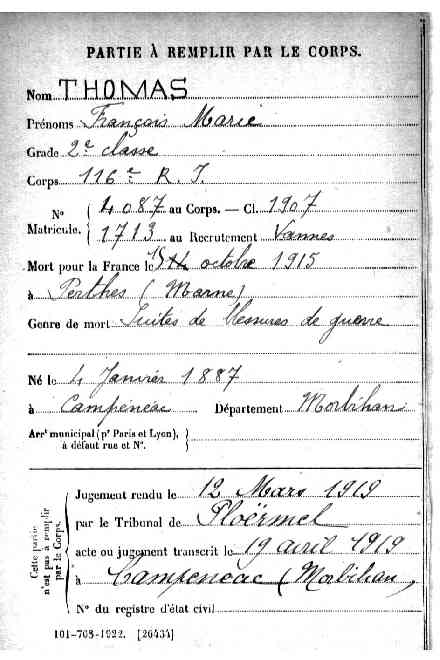 PARTIE À REMPLIR PAR LE CORPS.
Nom THOMAS
Prénoms François Marie
Grade 2e classe
Corps 116e R. I.
N° Matricule. { 4087 au Corps. — Cl. 1907
1713 au Recrutement Vannes
Mort pour la France le 15 octobre 1915
à Perthes (Marne)
Genre de mort Suites de blessures de guerre
Né le 4 Janvier 1887
à Campénéac Département Morbihan
Arrt municipal (pr Paris et Lyon), à défaut rue et N°. }
Cette partie n'est pas à remplir par le Corps.
Jugement rendu le 12 Mars 1919
par le Tribunal de Ploërmel
acte ou jugement transcrit le 19 avril 1919
à Campeneac (Morbihan)
N° du registre d'état civil
101-708-1922. [26434]